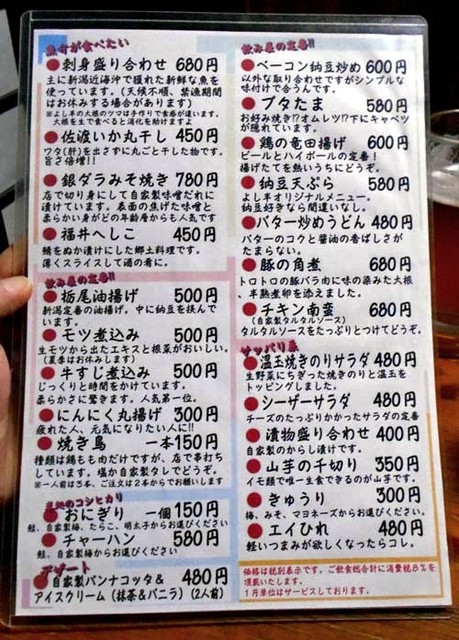 魚介が食べたい
刺身盛り合わせ 680円
主に新潟近海沖で獲れた新鮮な魚を
使っています。(天候不順、禁漁期間
はお休みする場合があります)
※よし半の大根のツマは手作りで食感が違います。
大根を生で食べると消化を助けますよ
佐渡いか丸干し 450円
ワタ(肝)を出さずに丸ごと干した物です。
旨さ倍増!!
銀ダラみそ焼き 780円
店で切り身にして自家製味噌だれに
漬けています。表面の焦げた味噌と
柔らかい身がどの年齢身からも人気です
福井へしこ 450円
鯖をぬか漬けにした郷土料理です。
薄くスライスして酒の肴に。
飲み屋の定番!!
栃尾油揚げ 500円
新潟定番の油揚げ。中に納豆を挟んで
います。
モツ煮込み 500円
生モツから出たエキスと根菜がおいしい。
(夏季はお休みします)
牛すじ煮込み 500円
じっくりと時間をかけています。
柔らかさに驚きます。人気第一位。
にんにく丸揚げ 300円
疲れた人、元気になりたい人に!!
焼き鳥 一本150円
種類は鶏もも肉だけですが、店で串打ち
しています。塩か自家製タレでどうぞ。
※一人前は3本、ご注文は2本からでお願いします
コシヒカリ
おにぎり 一個150円
鮭、自家製梅、たらこ、明太子からお選びください
チャーハン 580円
鮭、自家製梅からお選びください
デザート
自家製パンナコッタ& 480円
アイスクリーム(抹茶&バニラ)(2人前)
飲み屋の定番!!
ベーコン納豆炒め 600円
以外な取り合わせですがシンプルな
味付けで合うんです。
ブタたま 580円
お好み焼き!?オムレツ!?下にキャベツ
が隠れています。
鶏の竜田揚げ 600円
ビールとハイボールの定番!
揚げたてを熱いうちにどうぞ。
納豆天ぷら 580円
よし半オリジナルメニュー。
納豆好きなら間違いなし。
バター炒めうどん 480円
バターのコクと醤油の香ばしさが
たまらない。
豚の角煮 680円
トロトロの豚バラ肉に味の染みた大根
、半熟煮卵を添えました。
チキン南蛮 680円
(自家製タルタルソース)
タルタルソースをたっぷりとつけてどうぞ。
サッパリ系
温玉焼きのりサラダ 480円
生野菜にちぎった焼きのりと温玉を
トッピングしました。
シーザーサラダ 480円
チーズのたっぷりかかったサラダの定番
漬物盛り合わせ 400円
自家製のからし漬けです。
山芋の千切り 350円
イモ類で唯一生食できるのが山芋です。
きゅうり 300円
梅、みそ、マヨネーズからお選びください
エイひれ 480円
軽いつまみが欲しくなったらコレ。
価格は税別表示です。ご飲食総合計に消費税8%を
頂戴いたします。
1円単位はサービスしております。